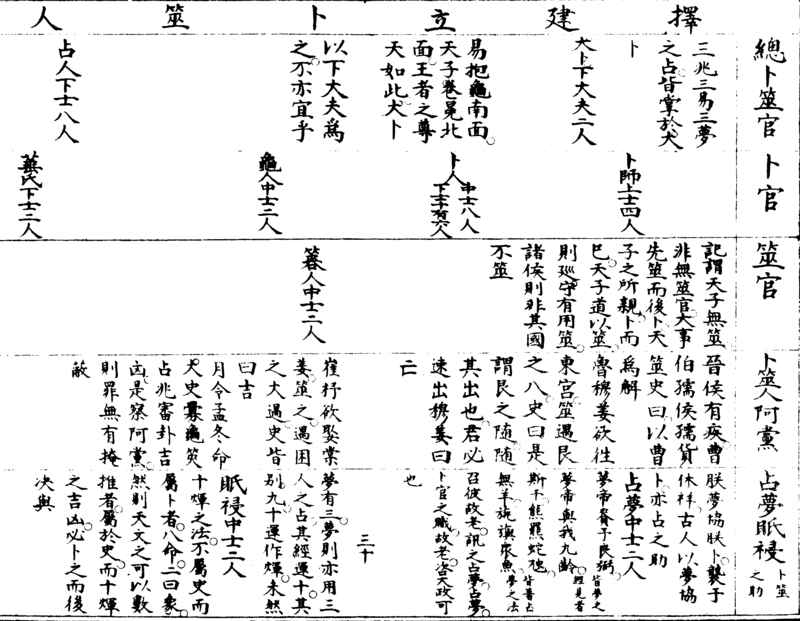 擇建立卜筮人
總卜筮官
三兆三易三夢
之占皆掌於大
卜
大卜下大夫二人
易抱龜南面
天子卷冕北
面王者之尊
天如此大卜
以下大夫為
之不亦宜乎
占人下士八人
卜官
卜師上士四人
卜人
中士八人
下士十有六人
龜人中士二人
菙氏下士二人
筮官
記謂天子無筮
非無筮官大事
先筮而後卜天
子之所親卜而
已天子道以筮
則廵守有用筮
諸侯則非其國
不筮
簭人中士二人
卜筮人阿黨
晉侯有疾曹
伯孺侯獳貨
筮史曰以曹
為解
魯穆姜欲往
東宮筮遇艮
之八史曰是
謂艮之隨隨
其出也君必
速出穆姜曰
亡
崔杼欲娶棠
姜筮之遇困
之大過史皆
曰吉
月令孟冬命
大史釁龜筴
占兆審卦吉
凶是察阿黨
則罪無有掩
蔽
占夢眡祲
卜筮
之助
朕夢協朕卜襲于
休祥古人以夢協
卜亦占之助
占夢中士二人
夢帝賚予良弼
皆夢之
夢帝與我九齡
經見者
斯干熊羆蛇虺
皆著占
無羊旐旟衆魚
夢之法
召彼故老訊之占夢占夢
卜官之職故老咨天政可
也
三十
夢有三夢則亦用三
人之占其經運十其
別九十運作煇未然
眡祲中士二人
十煇之法不屬史而
屬卜者八命二曰象
然則天文之可以數
推者屬於史而十煇
之吉凶必卜之而後
决與